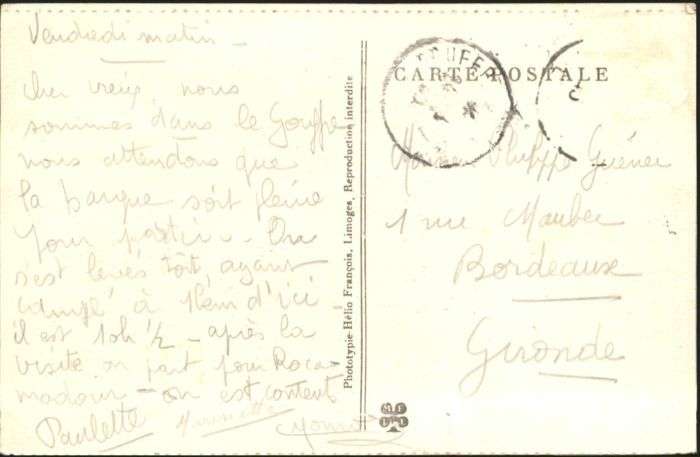 Vendredi matin -
Cher vieux, nous
sommes dans le Gouffre
nous attendons que
la barque soit pleine
pour partir - On
s'est levés tôt, ayant
campé à 1km d'ici
il est 10h 1/2 - après la
visite on part pour Roca-
madour - on est content
Paulette Marinette
Photototypie-Hélio François, Limoges, Reproduction interdite
CARTE POSTALE
Philippe Guéner
1 rue Maubec
Bordeaux
Gironde